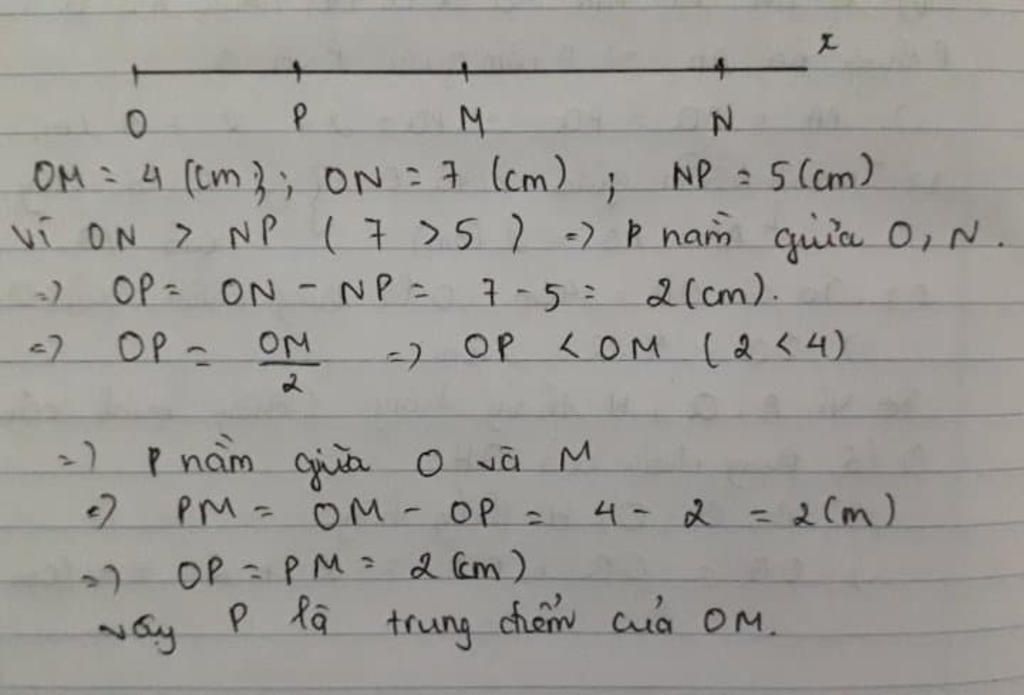 x
O P M N
OM = 4 (cm); ON = 7 (cm) ; NP = 5 (cm)
Vì ON > NP ( 7 > 5 ) => P nằm giữa O, N.
=> OP = ON - NP = 7 - 5 = 2 (cm).
=> OP = OM/2 => OP < OM ( 2 < 4)
=> P nằm giữa O và M
=> PM = OM - OP = 4 - 2 = 2 (m)
=> OP = PM = 2 (cm)
Vậy P là trung điểm của OM.